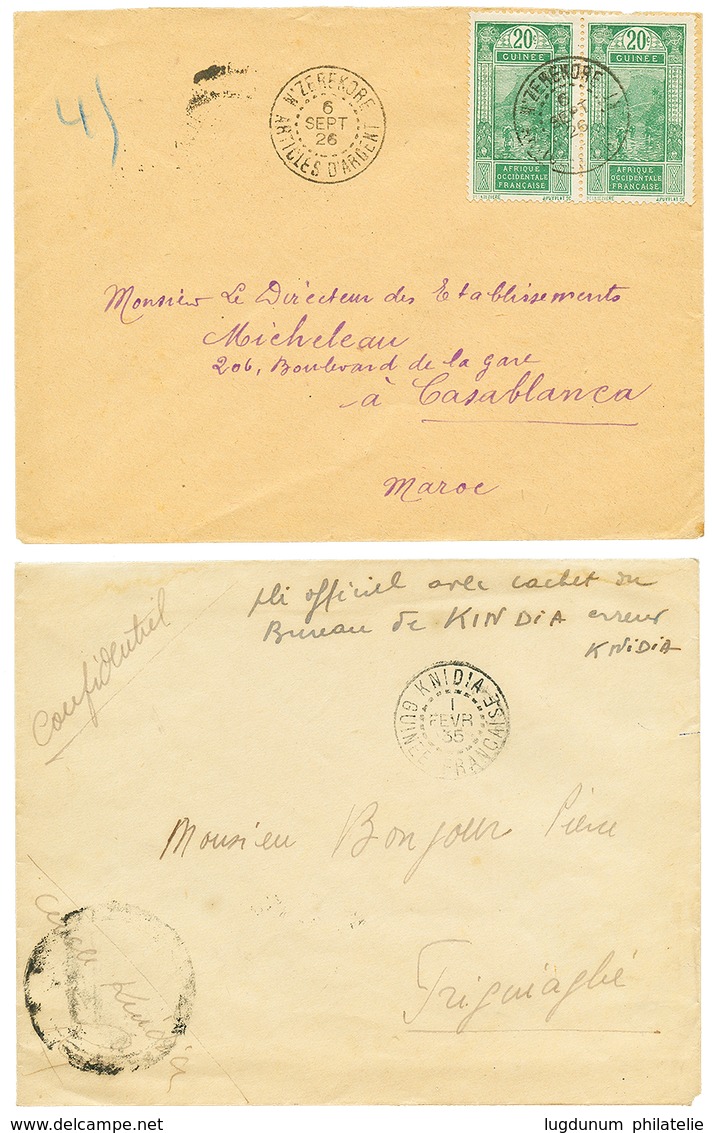 45
N'ZEREKORE
6
SEPT
26
ARTICLES D'ARGENT
20c 20c
GUINÉE GUINÉE
N'ZEREKORE
6
SEPT
26
AFRIQUE AFRIQUE
OCCIDENTALE OCCIDENTALE
FRANÇAISE FRANÇAISE
Monsieur Le Directeur des Etablissements
Micheleau
206, Boulevard de la gare
à Casablanca
Maroc
Confidentiel
Pli officiel avec cachet du
Bureau de KINDIA erreur
KNIDIA
KNIDIA
1
FEVR
35
GUINÉE FRANÇAISE
Monsieur Bonjour Pierre
Friguiagbé
Cercle Kindia
lugdunum philatelie